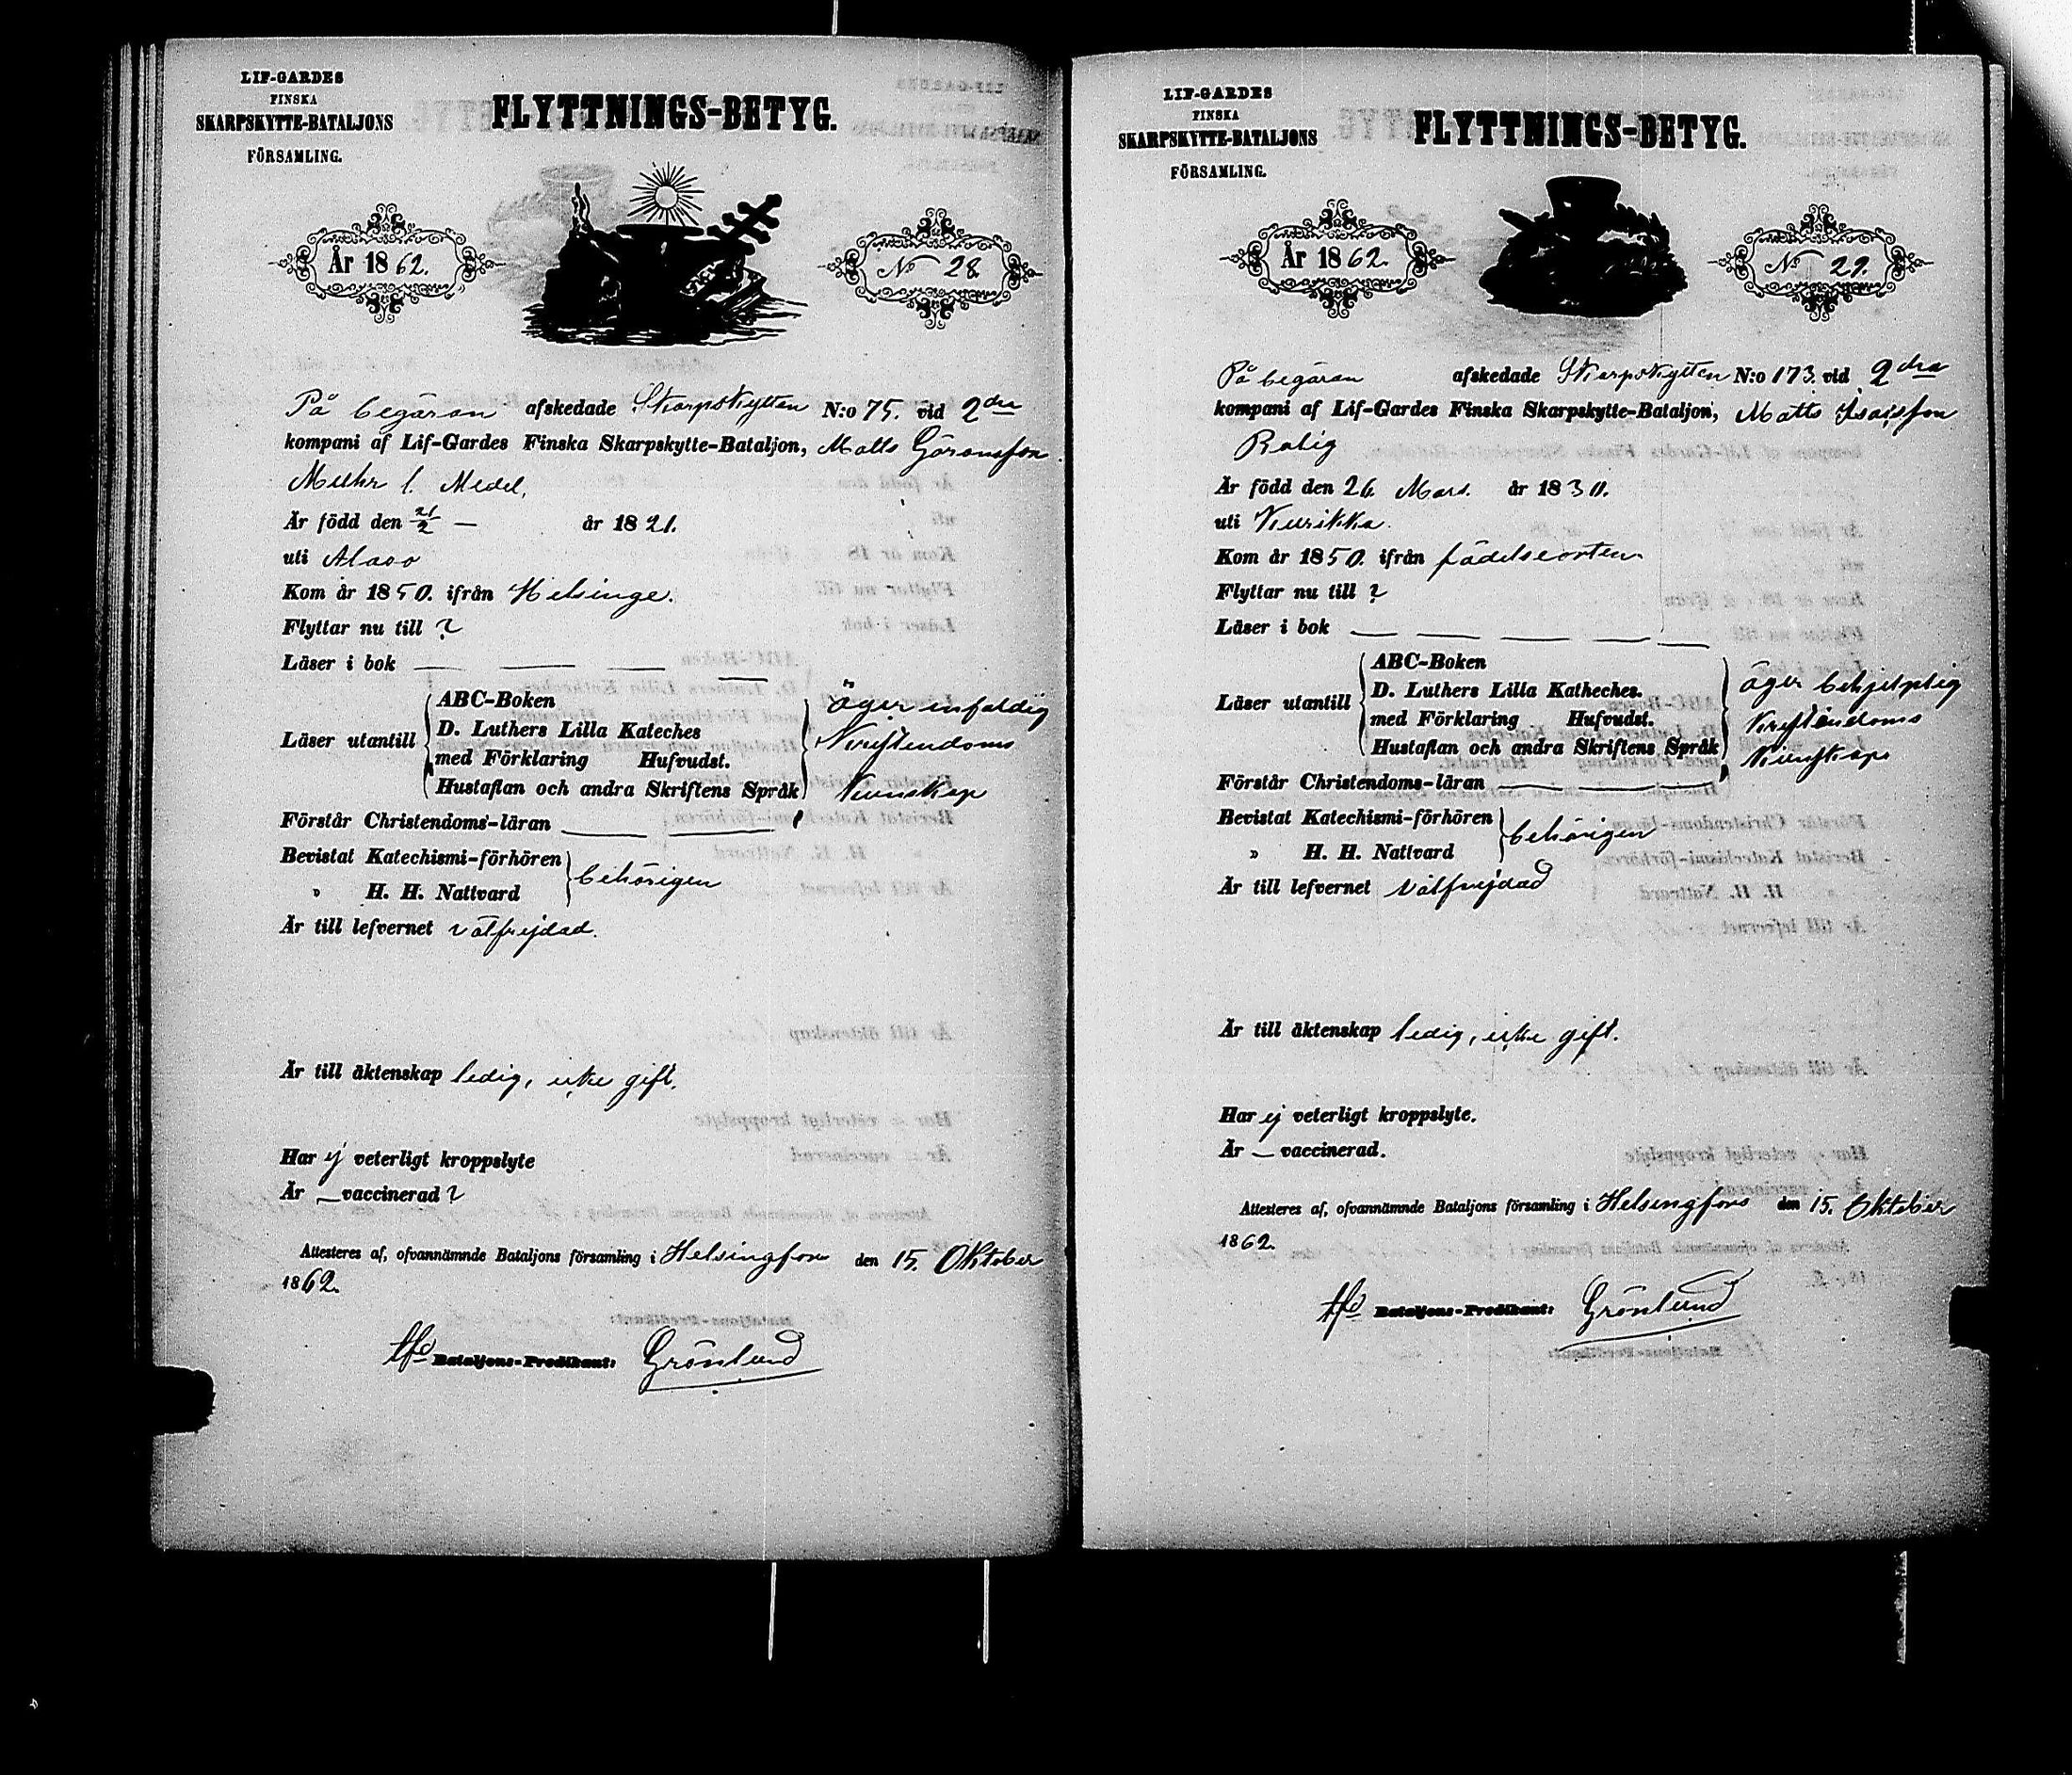 LIF-GARDES
FINSKA
SKARPSKYTTE-BATALJONS
FÖRSAMLING.
FLYTTNINGS-BETYG.
År 1862.
No 28.
På begäran afskedade Skarpskytten N:o 75. vid 2dra
kompani af Lif-Gardes Finska Skarpskytte-Bataljon, Matts Göransson
Muhr l. Medel,
Är född den 21/2 — år 1821.
uti Alavo
Kom år 1850. ifrån Helsinge.
Flyttar nu till ?
Läser i bok
Läser utantill
ABC-Boken
D. Luthers Lilla Kateches
med Förklaring Hufvudst.
Hustaflan och andra Skriftens Språk
Äger enfaldig
Kristendoms
Kunskap
Förstår Christendoms-läran
Bevistat Katechismi-förhören
" H. H. Nattvard
behörigen
Är till lefvernet välfrejdad.
Är till äktenskap ledig, icke gift.
Har ej veterligt kroppslyte
Är — vaccinerad ?
Attesteres af, ofvannämnde Bataljons församling i Helsingfors den 15. Oktober
1862.
Bataljons-Predikant: Grönlund
LIF-GARDES
FINSKA
SKARPSKYTTE-BATALJONS
FÖRSAMLING.
FLYTTNINGS-BETYG.
År 1862.
No 29.
På begäran afskedade Skarpskytten N:o 173. vid 2dra
kompani af Lif-Gardes Finska Skarpskytte-Bataljon, Matts Isaksson
Rolig
Är född den 26. Mars. år 1830.
uti Kurikka.
Kom år 1850. ifrån födelseorten
Flyttar nu till ?
Läser i bok
Läser utantill
ABC-Boken
D. Luthers Lilla Katheches.
med Förklaring Hufvudst.
Hustaflan och andra Skriftens Språk
äger behjelplig
Kristendoms
Kunskap
Förstår Christendoms-läran
Bevistat Katechismi-förhören
" H. H. Nattvard
behörigen
Är till lefvernet välfrejdad
Är till äktenskap ledig, icke gift.
Har ej veterligt kroppslyte.
Är — vaccinerad.
Attesteres af, ofvannämnde Bataljons församling i Helsingfors den 15. Oktober
1862.
Bataljons-Predikant: Grönlund